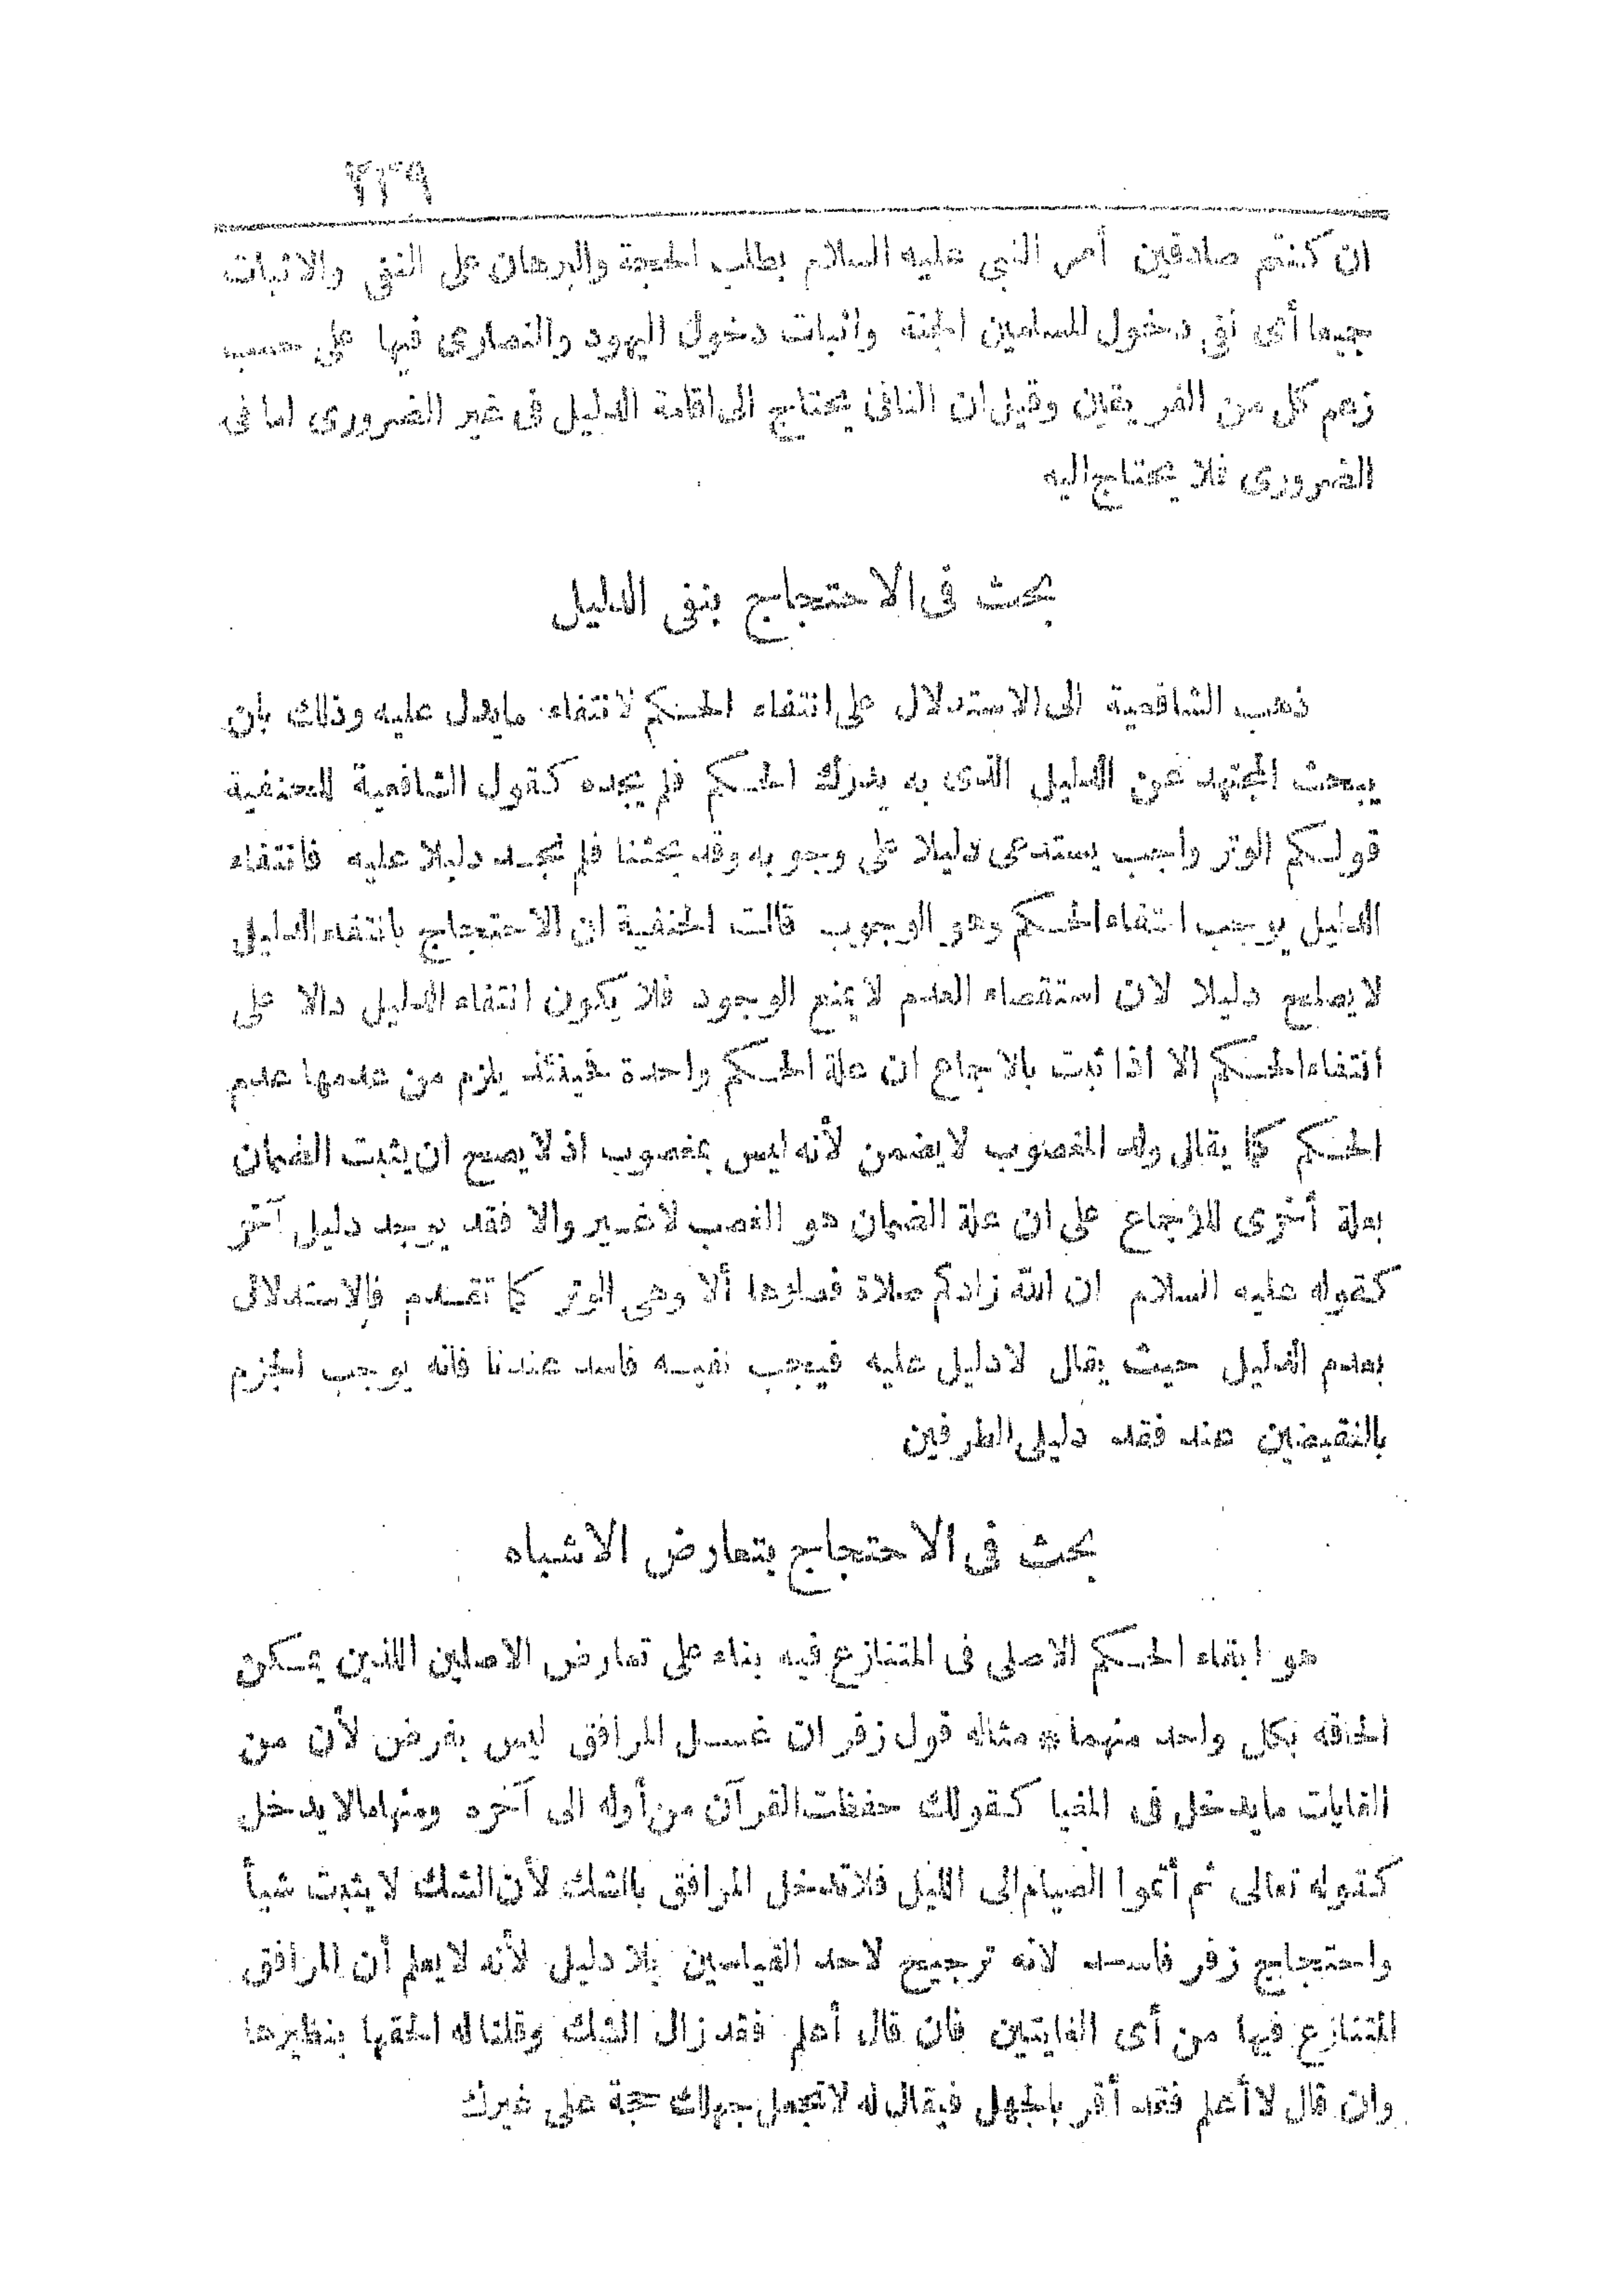 ان كنتم صادقين أمر النبي عليه السلام بطلب الحجة والبرهان على النفى والاثبات
جيعا أى نفى دخول المسلمين الجنة واثبات دخول اليهود والنصارى فيها على حسب
زعم كل من الفريقين وقيل ان النافى يحتاج الى اقامة الدليل فى غير الضرورى اما فى
الضرورى فلا يحتاج اليه
بحث فى الاحتجاج بنفى الدليل
ذهب الشافعية الى الاستدلال على انتفاء الحكم لانتفاء مايدل عليه وذلك بان
يبحث المجتهد عن الدليل الذى به يدرك الحكم فلم يجده كقول الشافعية للحنفية
قولكم الوتر واجب يستدعى دليلا على وجوبه وقد بحثنا فلم نجد دليلا عليه فانتفاء
الدليل يوجب انتفاء الحكم وهو الوجوب قالت الحنفية ان الاحتجاج بانتفاء الدليل
لا يصلح دليلا لان استقصاء العدم لا يمنع الوجود فلا يكون انتفاء الدليل دالا على
انتفاء الحكم الا اذا ثبت بالاجماع ان علة الحكم واحدة فحينئذ يلزم من عدمها عدم
الحكم كما يقال ولد المغصوب لا يضمن لأنه ليس بمغصوب اذ لا يصح ان يثبت الضمان
بعلة أخرى للاجماع على ان علة الضمان هو الغصب لا غير والا فقد يوجد دليل آخر
كقوله عليه السلام ان الله زادكم صلاة فصلوها ألا وهى الوتر كما تقدم فالاستدلال
بعدم الدليل حيث يقال لا دليل عليه فيجب نفيه فاسد عندنا فانه يوجب الجزم
بالنقيضين عند فقد دليلى الطرفين
بحث فى الاحتجاج بتعارض الاشباه
هو ابقاء الحكم الاصلى فى المتنازع فيه بناء على تعارض الاصلين اللذين يمكن
الحاقه بكل واحد منهما * مثاله قول زفر ان غسل المرافق ليس بفرض لأن من
الغايات مايدخل فى المغيا كقولك حفظت القرآن من أوله الى آخره ومنها مالا يدخل
كقوله تعالى ثم أتموا الصيام الى الليل فلا تدخل المرافق بالشك لأن الشك لا يثبت شيأ
واحتجاج زفر فاسد لانه ترجيح لاحد القياسين بلا دليل لأنه لا يعلم أن المرافق
المتنازع فيها من أى الغايتين فان قال أعلم فقد زال الشك وقلنا له الحقها بنظيرها
وان قال لا أعلم فقد أقر بالجهل فيقال له لا تجعل جهلك حجة على غيرك